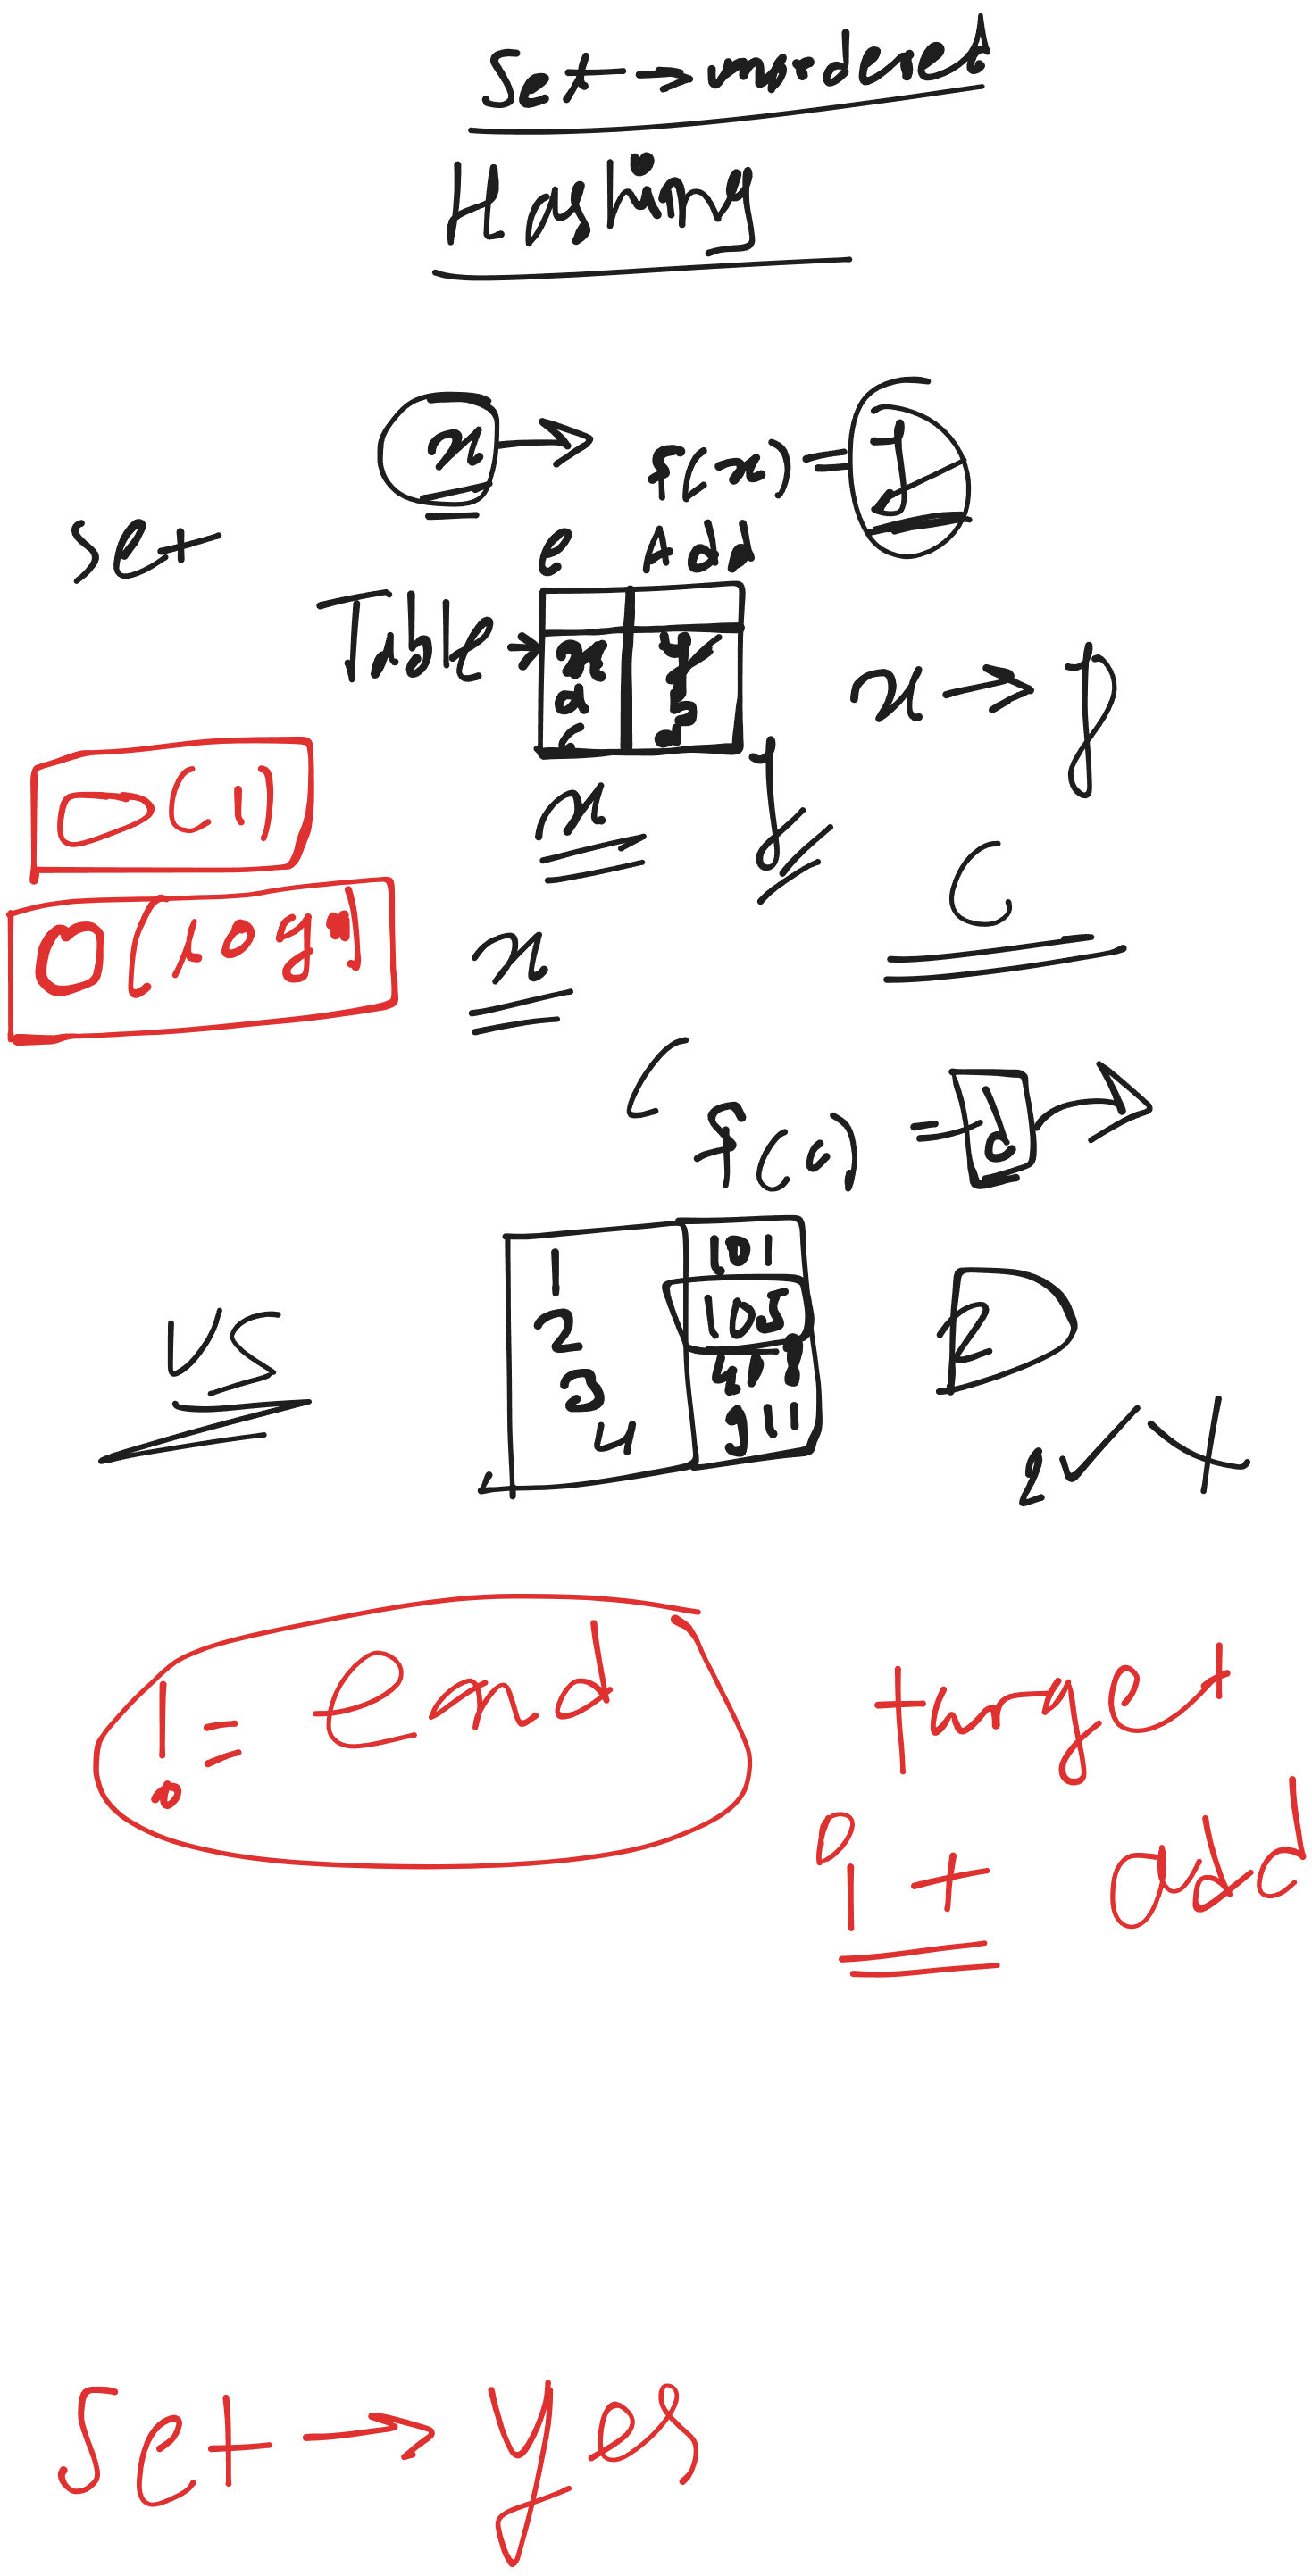 Set → unordered
Hashing
x → f(x) = y
set
e Add
Table →
x y
a b
c d
x → y
O(1)
x y
C
O(logn)
x
C
f(c) = d →
1 101
2 105
2
US
3
4 911
2
!= end
target
it add
Set → Yes